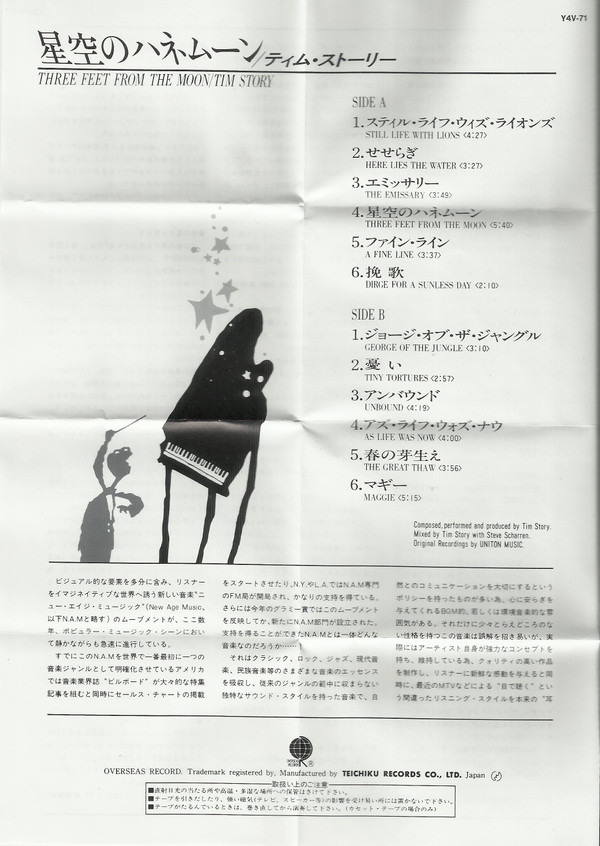 Y4V-71
星空のハネムーン/ティム・ストーリー
THREE FEET FROM THE MOON/TIM STORY
SIDE A
1.スティル・ライフ・ウィズ・ライオンズ
STILL LIFE WITH LIONS <4:27>
2.せせらぎ
HERE LIES THE WATER <3:27>
3.エミッサリー
THE EMISSARY <3:49>
4.星空のハネムーン
THREE FEET FROM THE MOON <5:40>
5.ファイン・ライン
A FINE LINE <3:37>
6.挽 歌
DIRGE FOR A SUNLESS DAY <2:10>
SIDE B
1.ジョージ・オブ・ザ・ジャングル
GEORGE OF THE JUNGLE <3:10>
2.憂 い
TINY TORTURES <2:57>
3.アンバウンド
UNBOUND <4:19>
4.アズ・ライフ・ウォズ・ナウ
AS LIFE WAS NOW <4:00>
5.春の芽生え
THE GREAT THAW <3:56>
6.マギー
MAGGIE <5:15>
Composed, performed and produced by Tim Story.
Mixed by Tim Story with Steve Scharren.
Original Recordings by UNITON MUSIC.
ビジュアル的な要素を多分に含み、リスナー
をイマジネイティブな世界へ誘う新しい音楽"ニ
ュー・エイジ・ミュージック"(New Age Music,
以下N.A.Mと略す)のムーブメントが、ここ数
年、ポピュラー・ミュージック・シーンにおい
て静かながらも急速に進行している。
すでにこのN.A.Mを世界で一番最初に一つの
音楽ジャンルとして明確化させているアメリカ
では音楽業界誌"ビルボード"が大々的な特集
記事を組むと同時にセールス・チャートの掲載
をスタートさせたり、N.Y.やL.A.ではN.A.M専門
のFM局が開局され、かなりの支持を得ている。
さらには今年のグラミー賞ではこのムーブメント
を反映してか、新たにN.A.M部門が設立された。
支持を得ることができたN.A.Mとは一体どんな
音楽なのだろうか……!
それはクラシック、ロック、ジャズ、現代音
楽、民族音楽等のさまざまな音楽のエッセンス
を吸収し、従来のジャンルの範中に収まらない
独特なサウンド・スタイルを持った音楽で、自
然とのコミュニケーションを大切にするという
ポリシーを持ったものが多い為、心に安らぎを
与えてくれるBGM的、若しくは環境音楽的な雰
囲気がある。それだけに少々とらえどころのな
い性格を持つこの音楽は誤解を招き易いが、実
際にはアーティスト自身が強力なコンセプトを
持ち、維持している為、クォリティの高い作品
を制作し、リスナーに新鮮な感動を与えると同
時に、最近のMTVなどによる"目で聴く"とい
う間違ったリスニング・スタイルを本来の"耳
OVERSEAS RECORD. Trademark registered by, Manufactured by TEICHIKU RECORDS CO., LTD. Japan
取扱い上のご注意
■直射日光の当たる所や高温・多湿な場所への保管はさけて下さい。
■テープを引きだしたり、強い磁気(テレビ、スピーカー等)の影響を受け易い所には置かないで下さい。
■テープがたるんでいるときは、巻き直してから演奏して下さい。(カセット・テープの場合のみ)